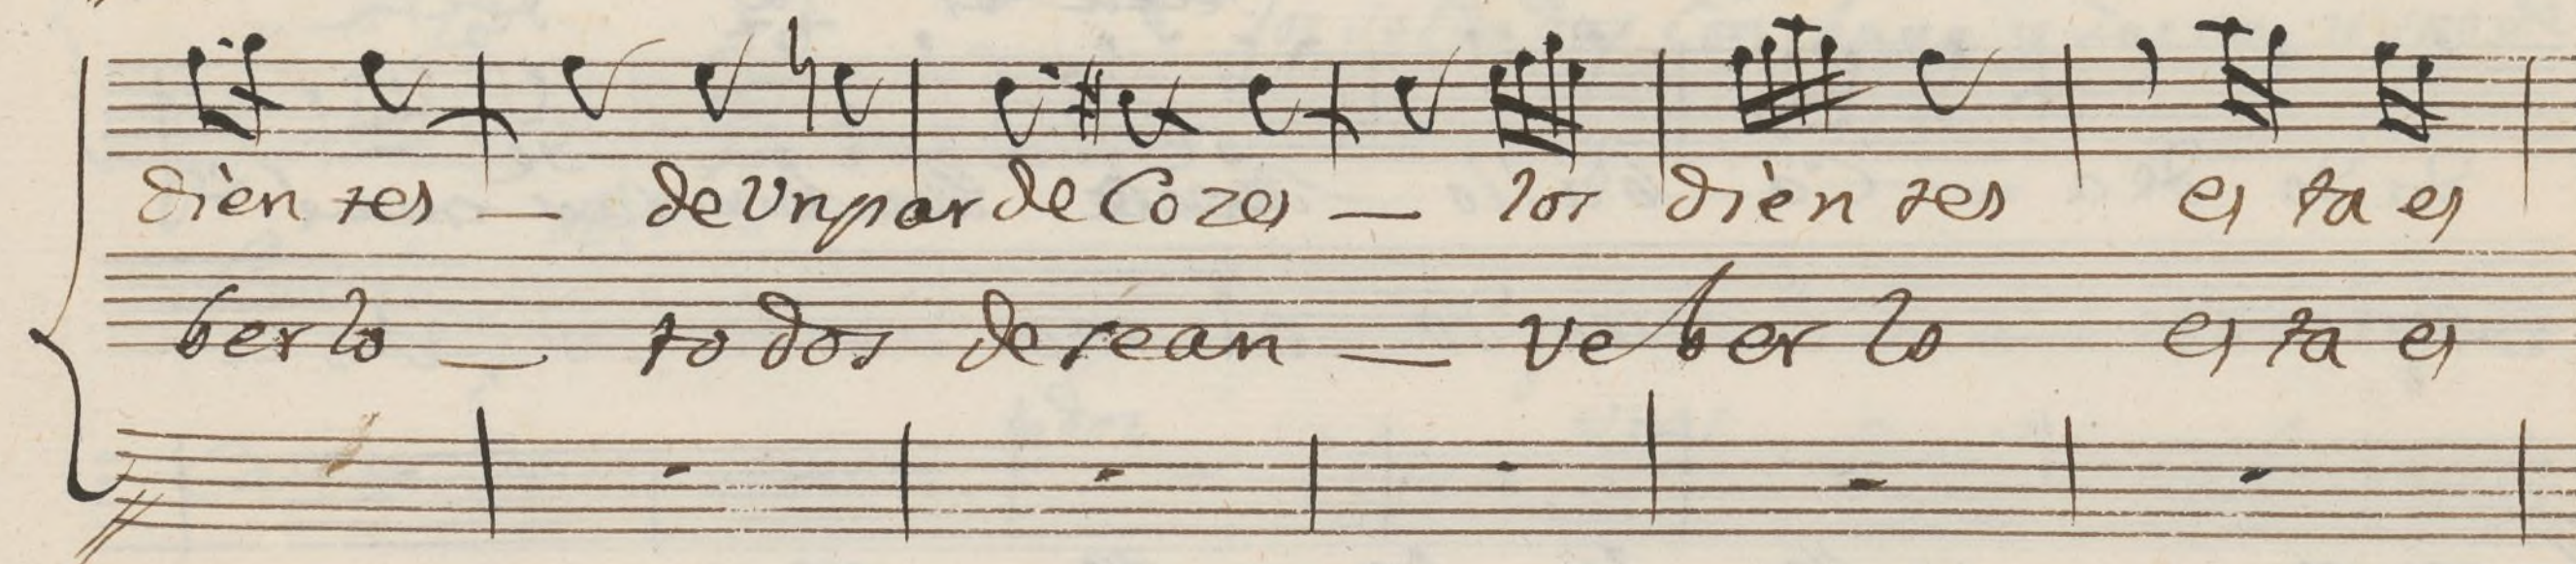 dièn tes — de Vn par de Cozes — los dièn tes es ta es
ber lo — to dos desean — ve ber lo es ta es